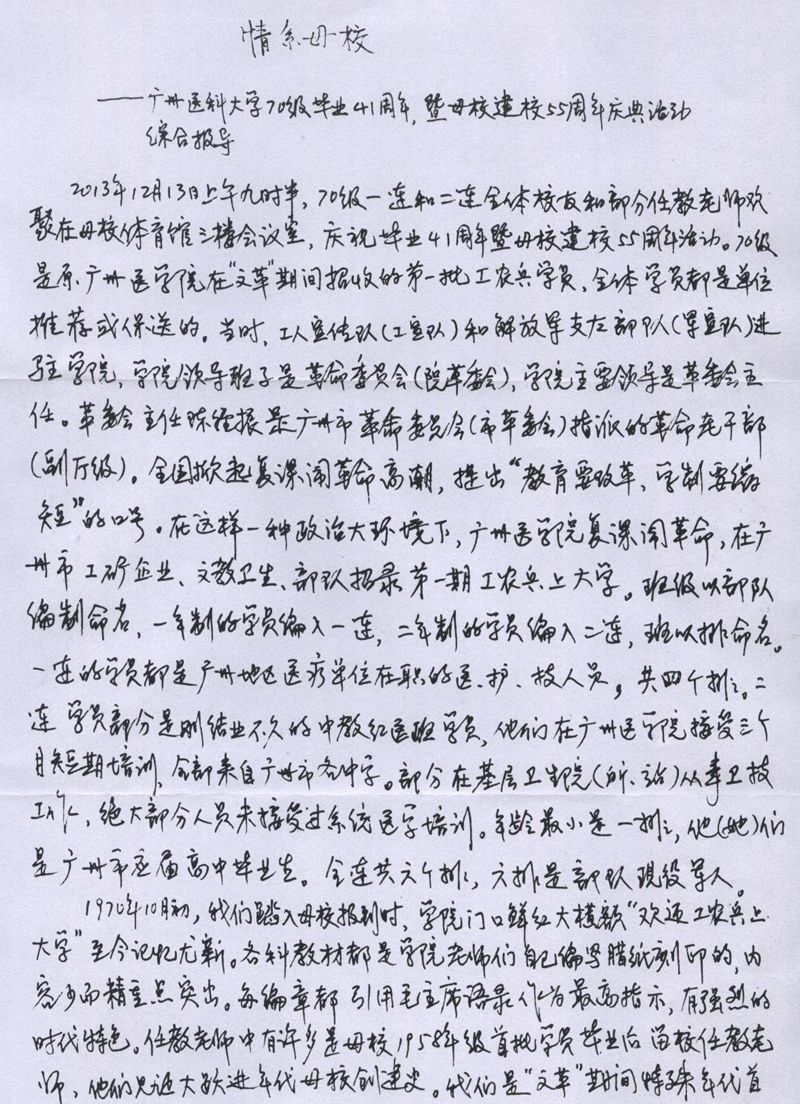 情系母校
——广州医科大学70级毕业41周年,暨母校建校55周年庆典活动
综合报导
2013年12月13日上午九时半,70级一连和二连全体校友和部分任教老师欢
聚在母校体育馆三楼会议室,庆祝毕业41周年暨母校建校55周年活动。70级
是原广州医学院在"文革"期间招收的第一批工农兵学员,全体学员都是单位
推荐或保送的。当时,工人宣传队(工宣队)和解放军支左部队(军宣队)进
驻学院,学院领导班子是革命委员会(院革委会),学院主要领导是革委会主
任。革委会主任陈经振是广州市革命委员会(市革委会)指派的革命老干部
(副厅级)。全国掀起复课闹革命高潮,提出"教育要改革、学制要缩
短"的口号。在这样一种政治大环境下,广州医学院复课闹革命,在广
州市工矿企业、文教卫生、部队招录第一期工农兵上大学。班级以部队
编制命名,一年制的学员编入一连,二年制的学员编入二连,班以排命名。
一连的学员都是广州地区医疗单位在职的医、护、技人员,共四个排。二
连学员部分是刚结业不久的中教红医班学员,他们在广州医学院接受三个
月短期培训,全部来自广州市各中学。部分在基层卫生院(所、站)从事卫技
工作,绝大部分人员未接受过系统医学培训。年龄最小是一排,他(她)们
是广州市应届高中毕业生。全连共六个排,六排是部队现役军人。
1970年10月初,我们踏入母校报到时,学院门口鲜红大横额"欢迎工农兵上
大学"至今记忆尤新。各科教材都是学院老师们自己编写腊纸刻印的,内
容少而精重点突出。每编章都引用毛主席语录作为最高指示,有强烈的
时代特色。任教老师中有许多是母校1958年级首批学员毕业后留校任教老
师,他们见证大跃进年代母校创建史。我们是"文革"期间特殊年代首